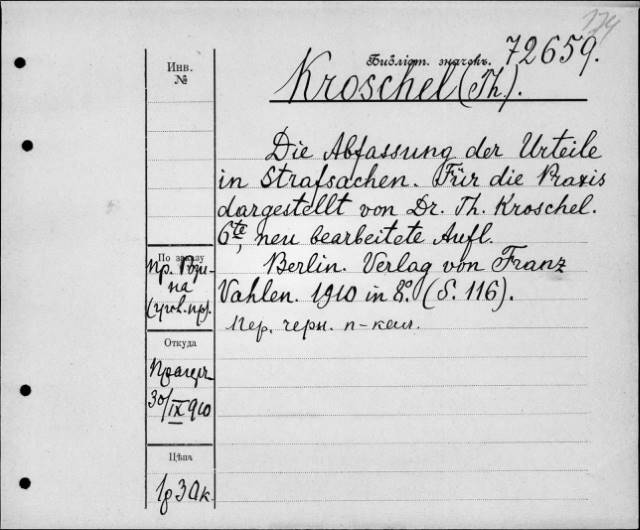 174
Библіот. значекъ. 72659.
Kroschel (Th.).
Инв.
№
Die Abfassung der Urteile
in Strafsachen. Für die Praxis
dargestellt von Dr. Th. Kroschel.
6te, neu bearbeitete Aufl.
Berlin. Verlag von Franz
Vahlen. 1910 in 8º. (S. 116).
Пер. черн. п-кол.
По заказу
пр.
на
(угол. пр).
Откуда
30/IX 910
Цѣна